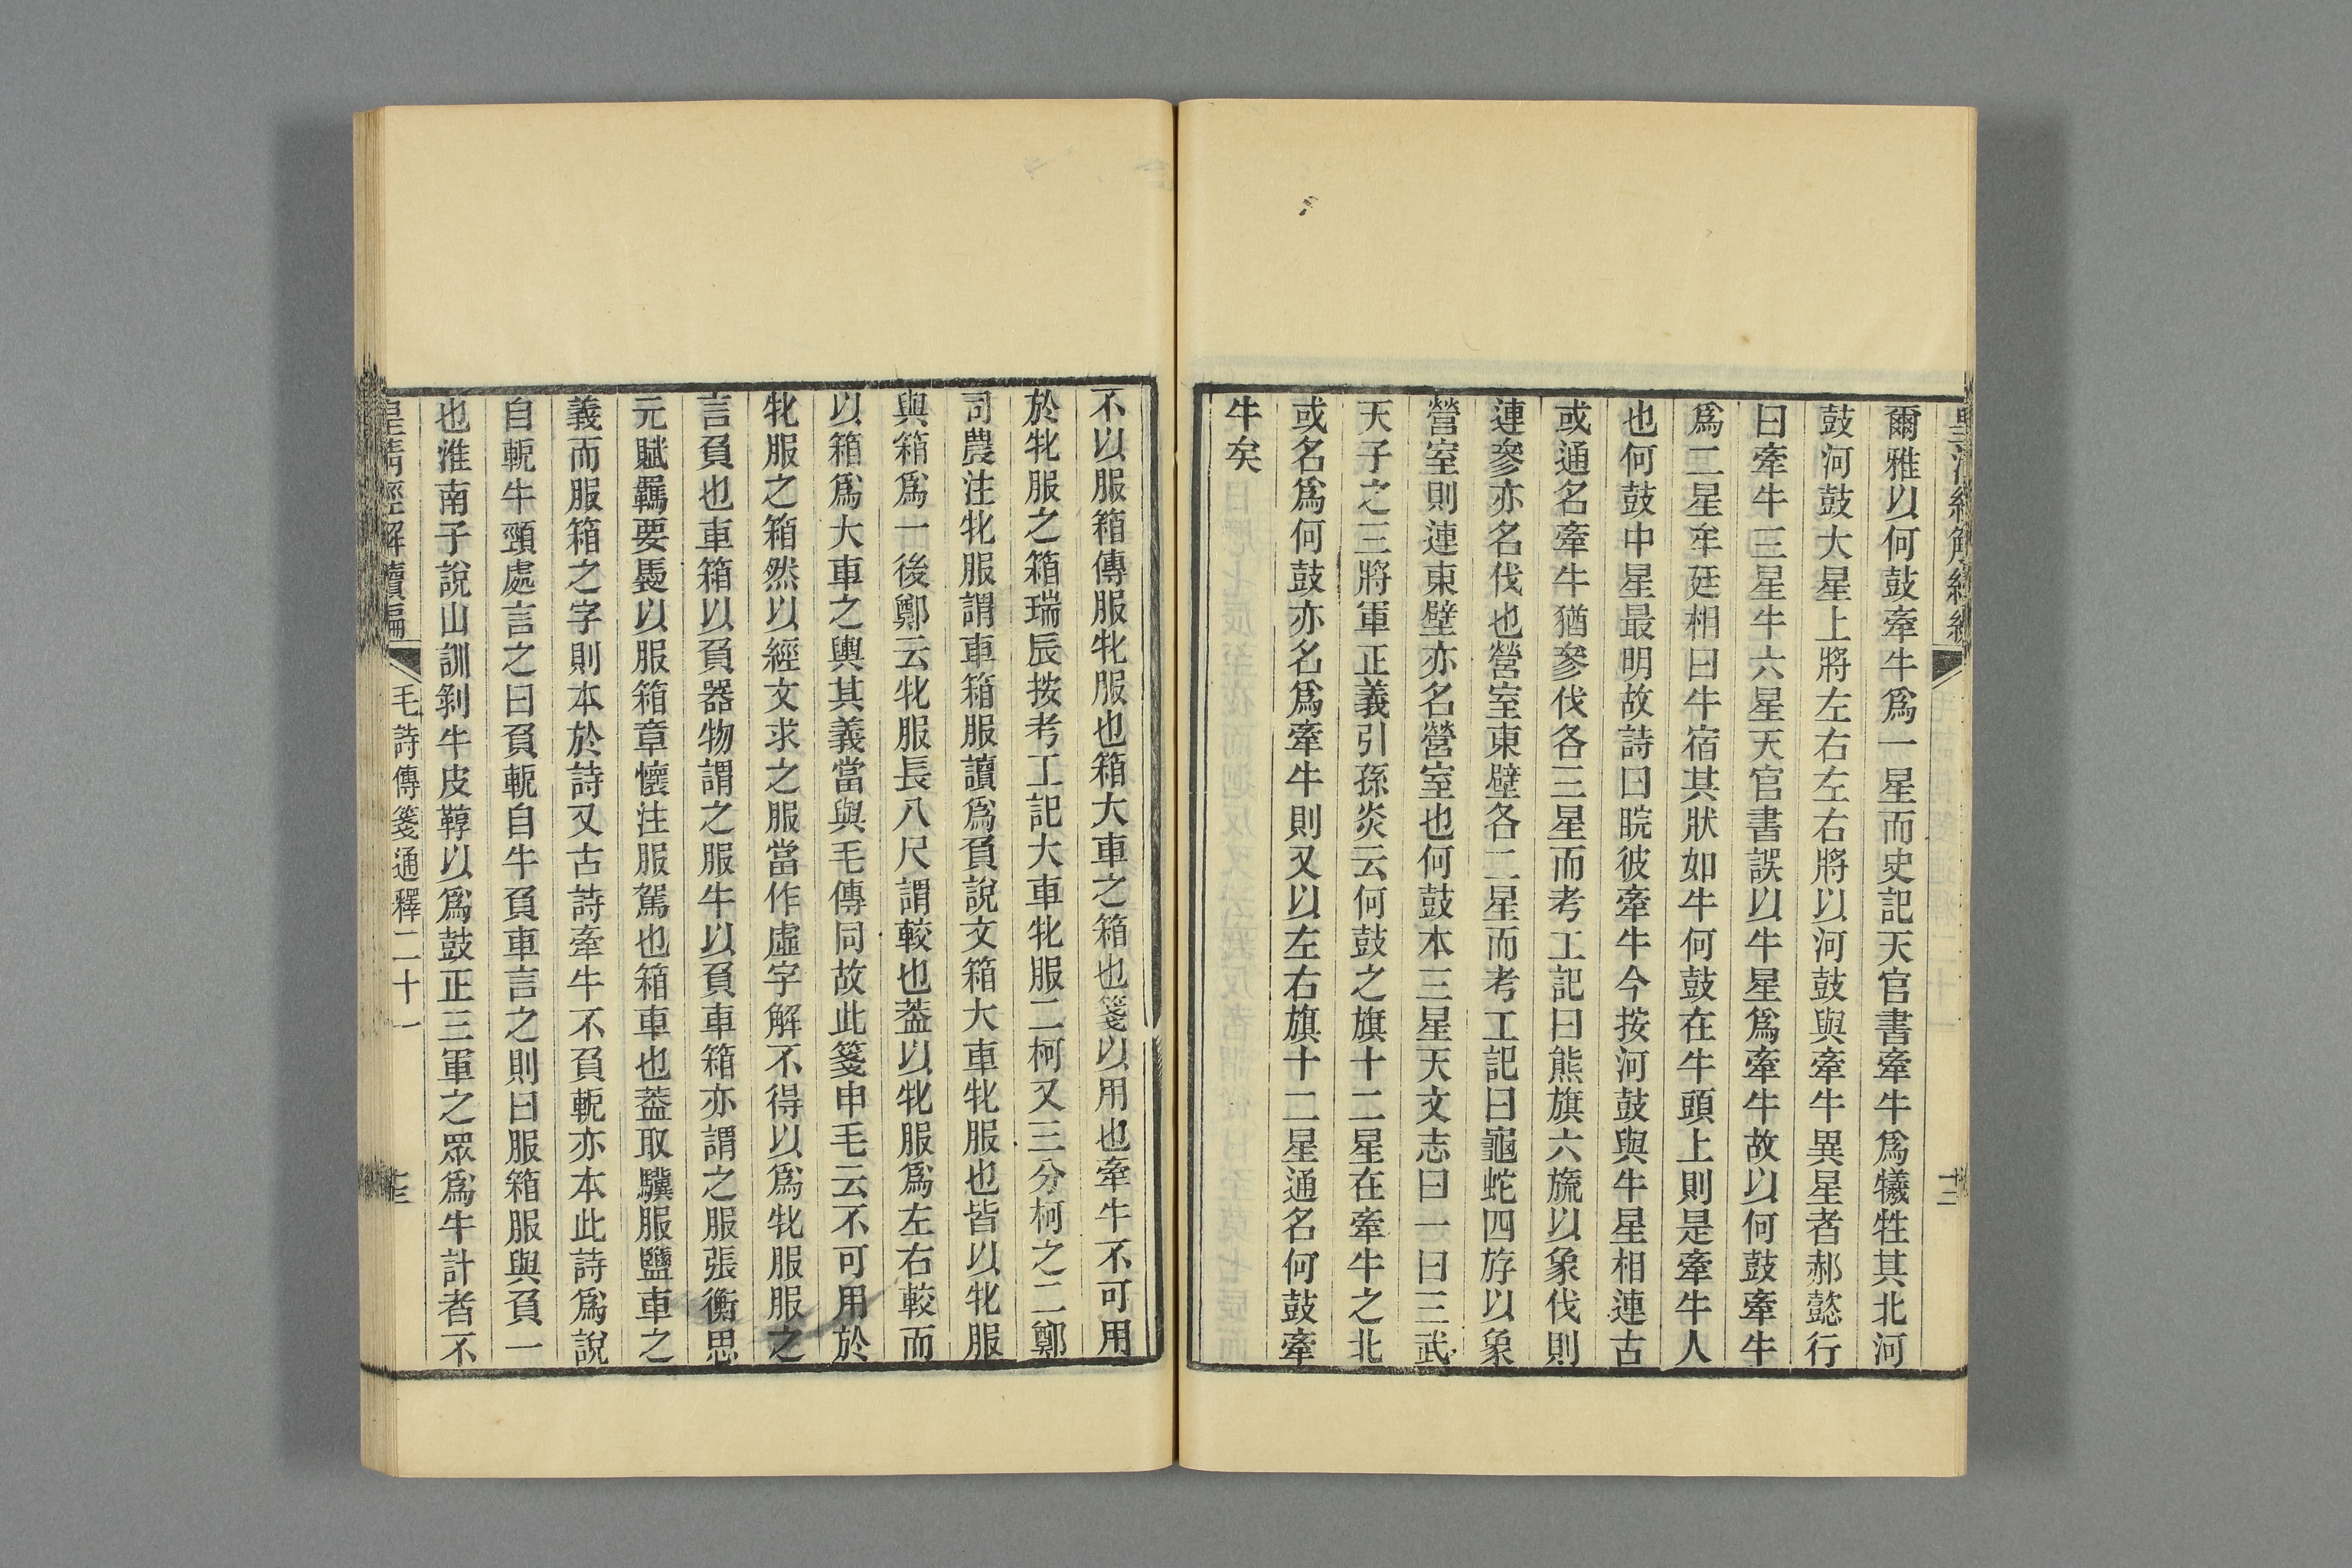 爾雅以何鼓牽牛爲一星而史記天官書牽牛爲犧牲其北河
鼓河鼓大星上將左右左右將以河鼓與牽牛異星者郝懿行
曰牽牛三星牛六星天官書誤以牛星爲牽牛故以何鼓牽牛
爲二星牟廷相曰牛宿其狀如牛何鼓在牛頭上則是牽牛人
也何鼓中星最明故詩曰睆彼牽牛今按河鼓與牛星相連古
或通名牽牛猶參伐各三星而考工記曰熊旗六旒以象伐則
連參亦名伐也營室東壁各二星而考工記曰龜蛇四斿以象
營室則連東壁亦名營室也何鼓本三星天文志曰一曰三武
天子之三將軍正義引孫炎云何鼓之旗十二星在牽牛之北
或名爲何鼓亦名爲牽牛則又以左右旗十二星通名何鼓牽
牛矣
不以服箱傳服牝服也箱大車之箱也箋以用也牽牛不可用
於牝服之箱瑞辰按考工記大車牝服二柯又三分柯之二鄭
司農注牝服謂車箱服讀爲負說文箱大車牝服也皆以牝服
與箱爲一後鄭云牝服長八尺謂較也蓋以牝服爲左右較而
以箱爲大車之輿其義當與毛傳同故此箋申毛云不可用於
牝服之箱然以經文求之服當作虛字解不得以爲牝服服之
言負也車箱以負器物謂之服牛以負車箱亦謂之服張衡思
元賦羈要褭以服箱章懷注服駕也箱車也蓋取驥服鹽車之
義而服箱之字則本於詩又古詩牽牛不負軛亦本此詩爲說
自軛牛頸處言之曰負軛自牛負車言之則曰服箱服與負一
也淮南子說山訓剝牛皮鞟以爲鼓正三軍之眾爲牛計者不
皇清經解續編
毛詩傳箋通釋二十一
十三